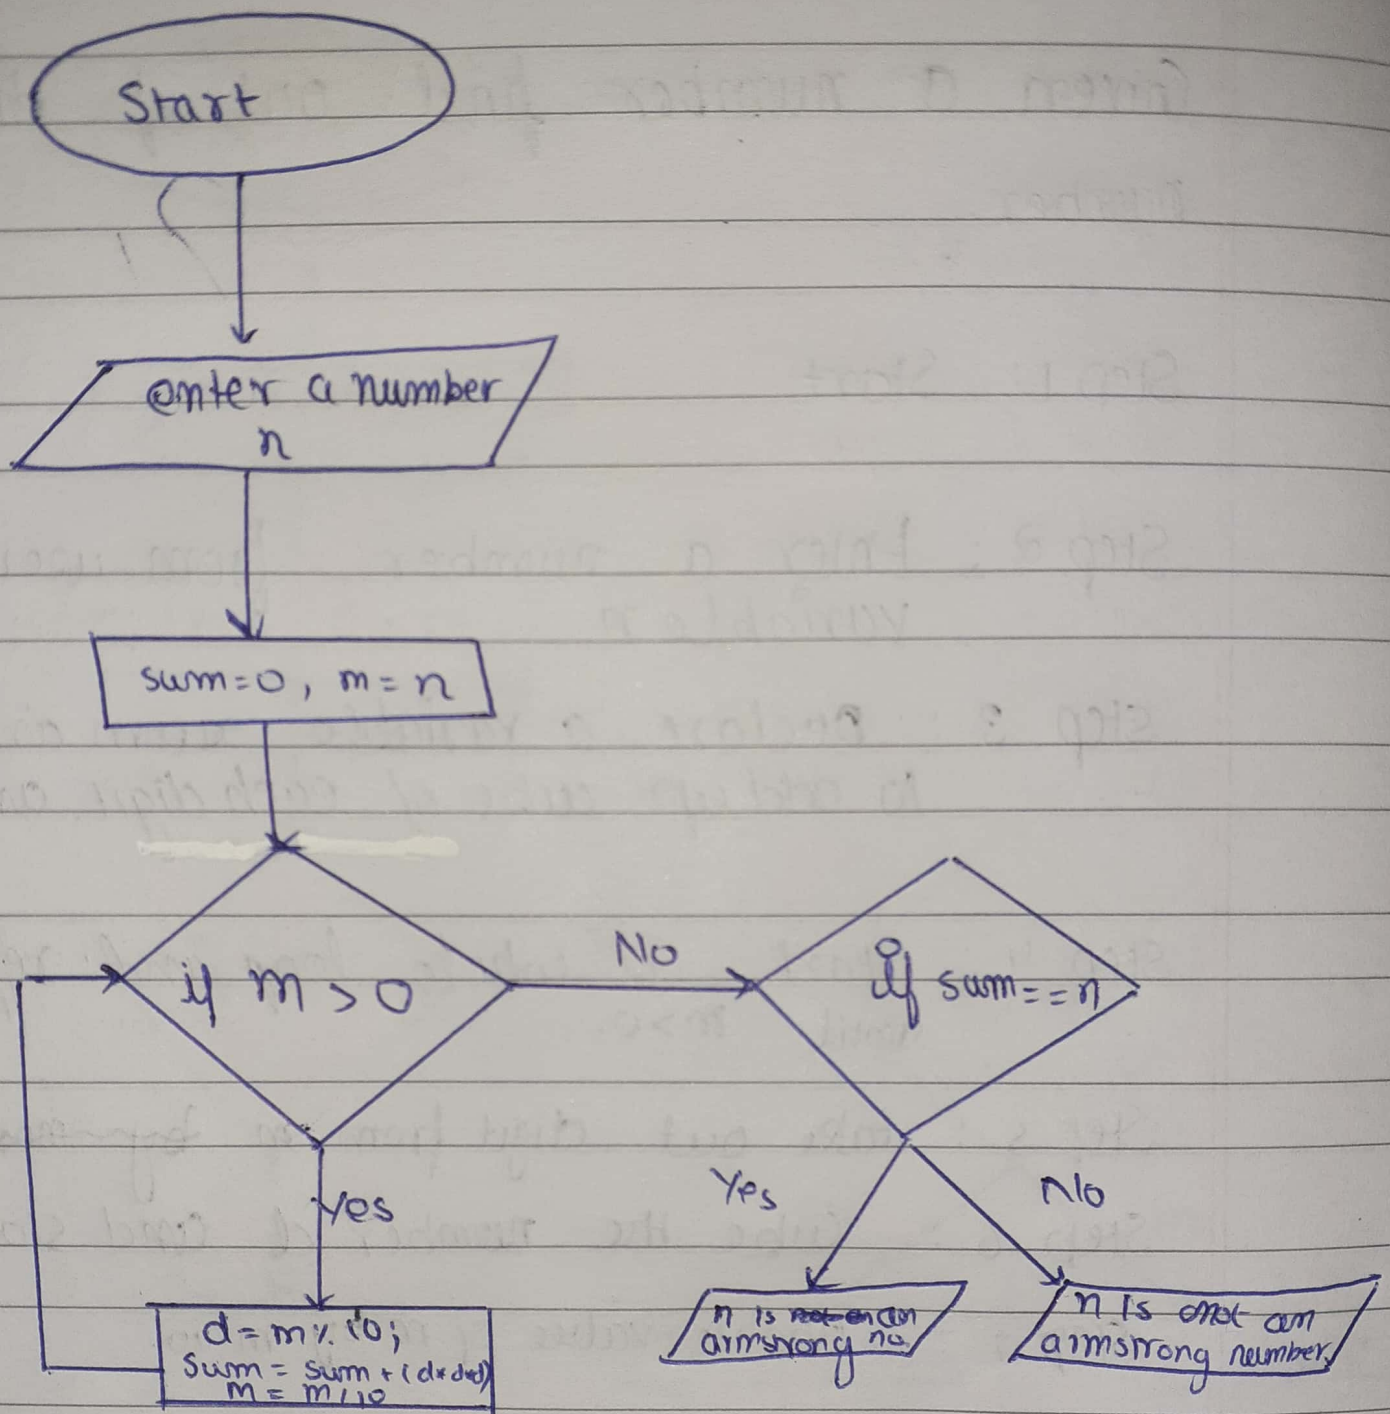 Start
enter a number
n
sum=0, m=n
if m > 0
No
if sum==n
Yes
Yes
No
d=m% 10;
sum = sum + (d*d*d)
m = m/10
n is an
armstrong no.
n is not an
armstrong number.